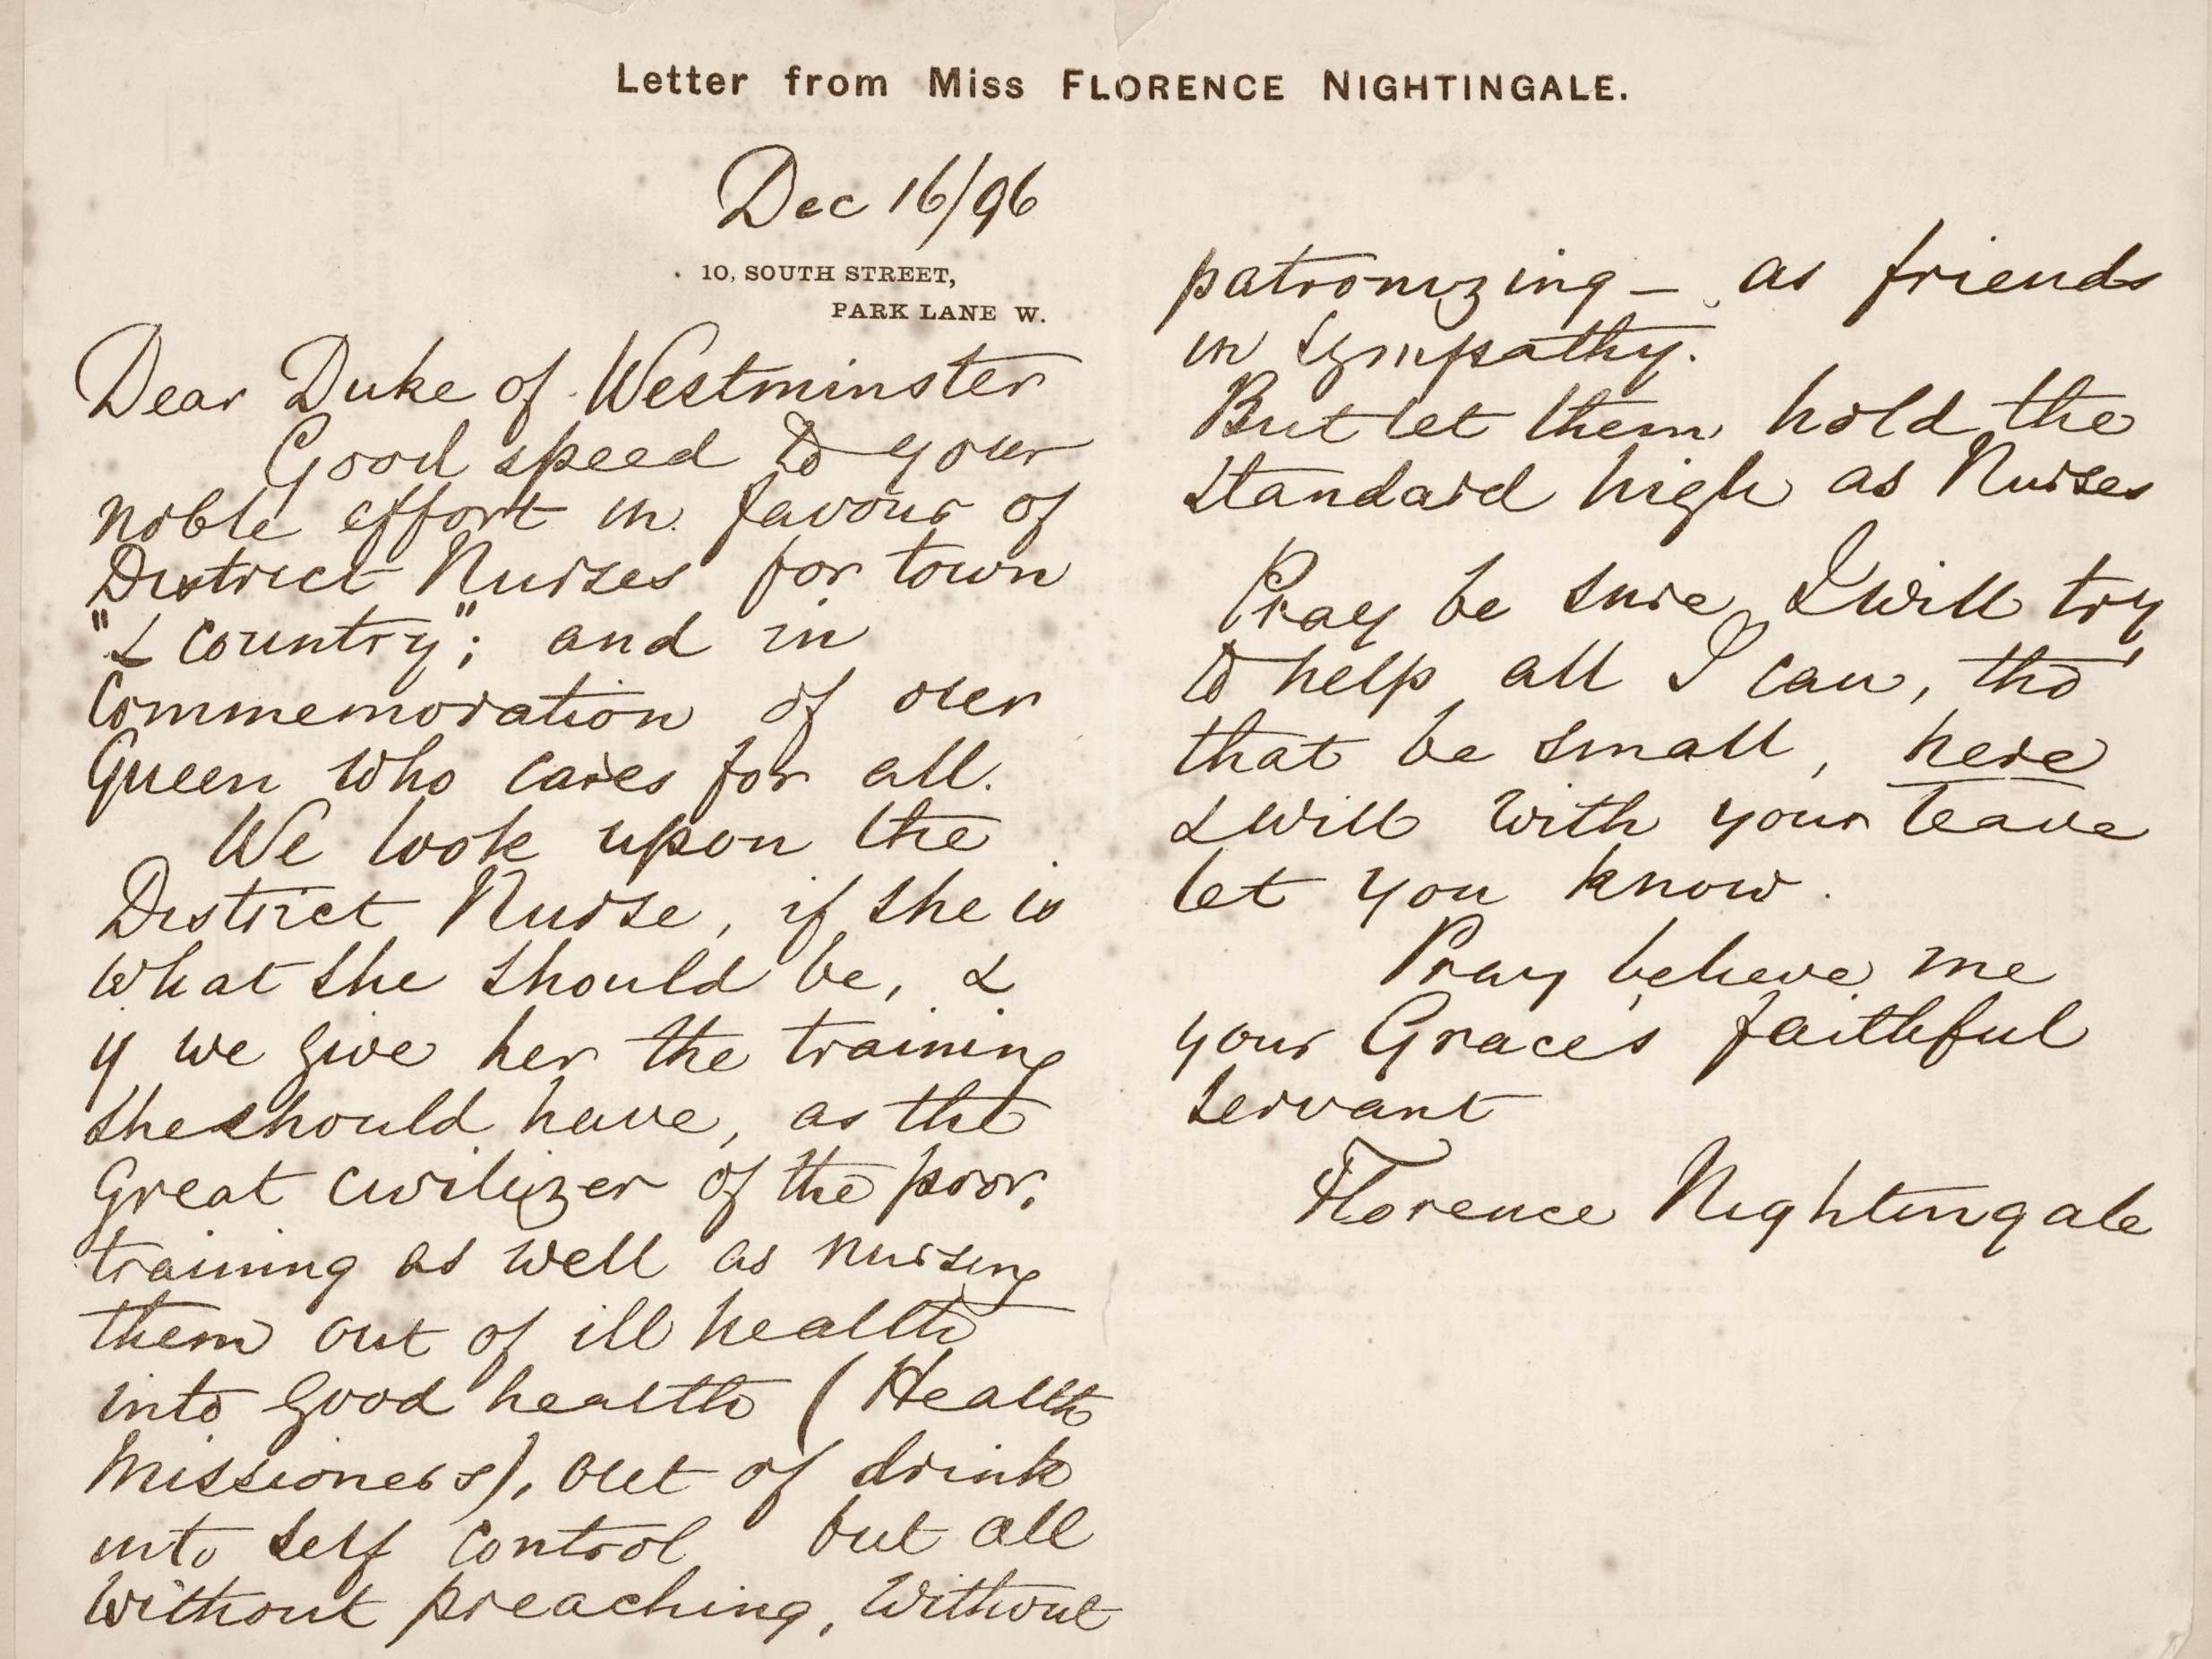 Letter from Miss FLORENCE NIGHTINGALE.
Dec 16/96
10, SOUTH STREET,
PARK LANE W.
Dear Duke of Westminster
Good speed to your
noble effort in favour of
District Nurses for town
"& Country"; and in
Commemoration of our
Queen who cares for all.
We look upon the
District Nurse, if she is
what she should be, &
if we give her the training
she should have, as the
Great civilizer of the poor,
training as well as nursing
them out of ill health
into good health (Health
Missioners), out of drink
into self control but all
without preaching, without
patronizing - as friends
in sympathy.
But let them hold the
standard high as Nurses
Pray be sure I will try
to help all I can, tho'
that be small, here
I will with your leave
let you know.
Pray believe me
your Grace's faithful
servant
Florence Nightingale